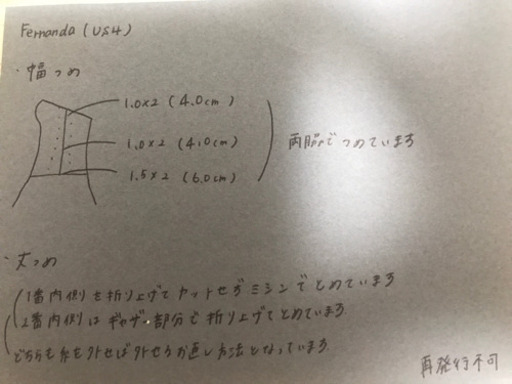 Fernanda (US4)
・幅つめ
1.0×2 (4.0cm)
1.0×2 (4.0cm)
両脇でつめています
1.5×2 (6.0cm)
・丈つめ
1番内側を折り上げてカットせずミシンでとめています
2番内側はギャザー部分で折り上げてとめています。
どちらも糸を外せば外せるお直し方法となっています。
再発行不可